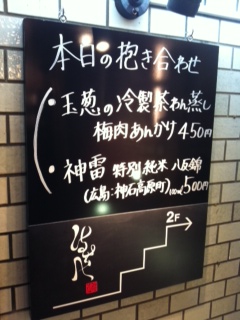 本日の抱き合わせ
・玉葱の冷製茶わん蒸し
梅肉あんかけ 450円
・神雷 特別純米 八反錦
(広島:神石高原町) 100ml 500円
2F